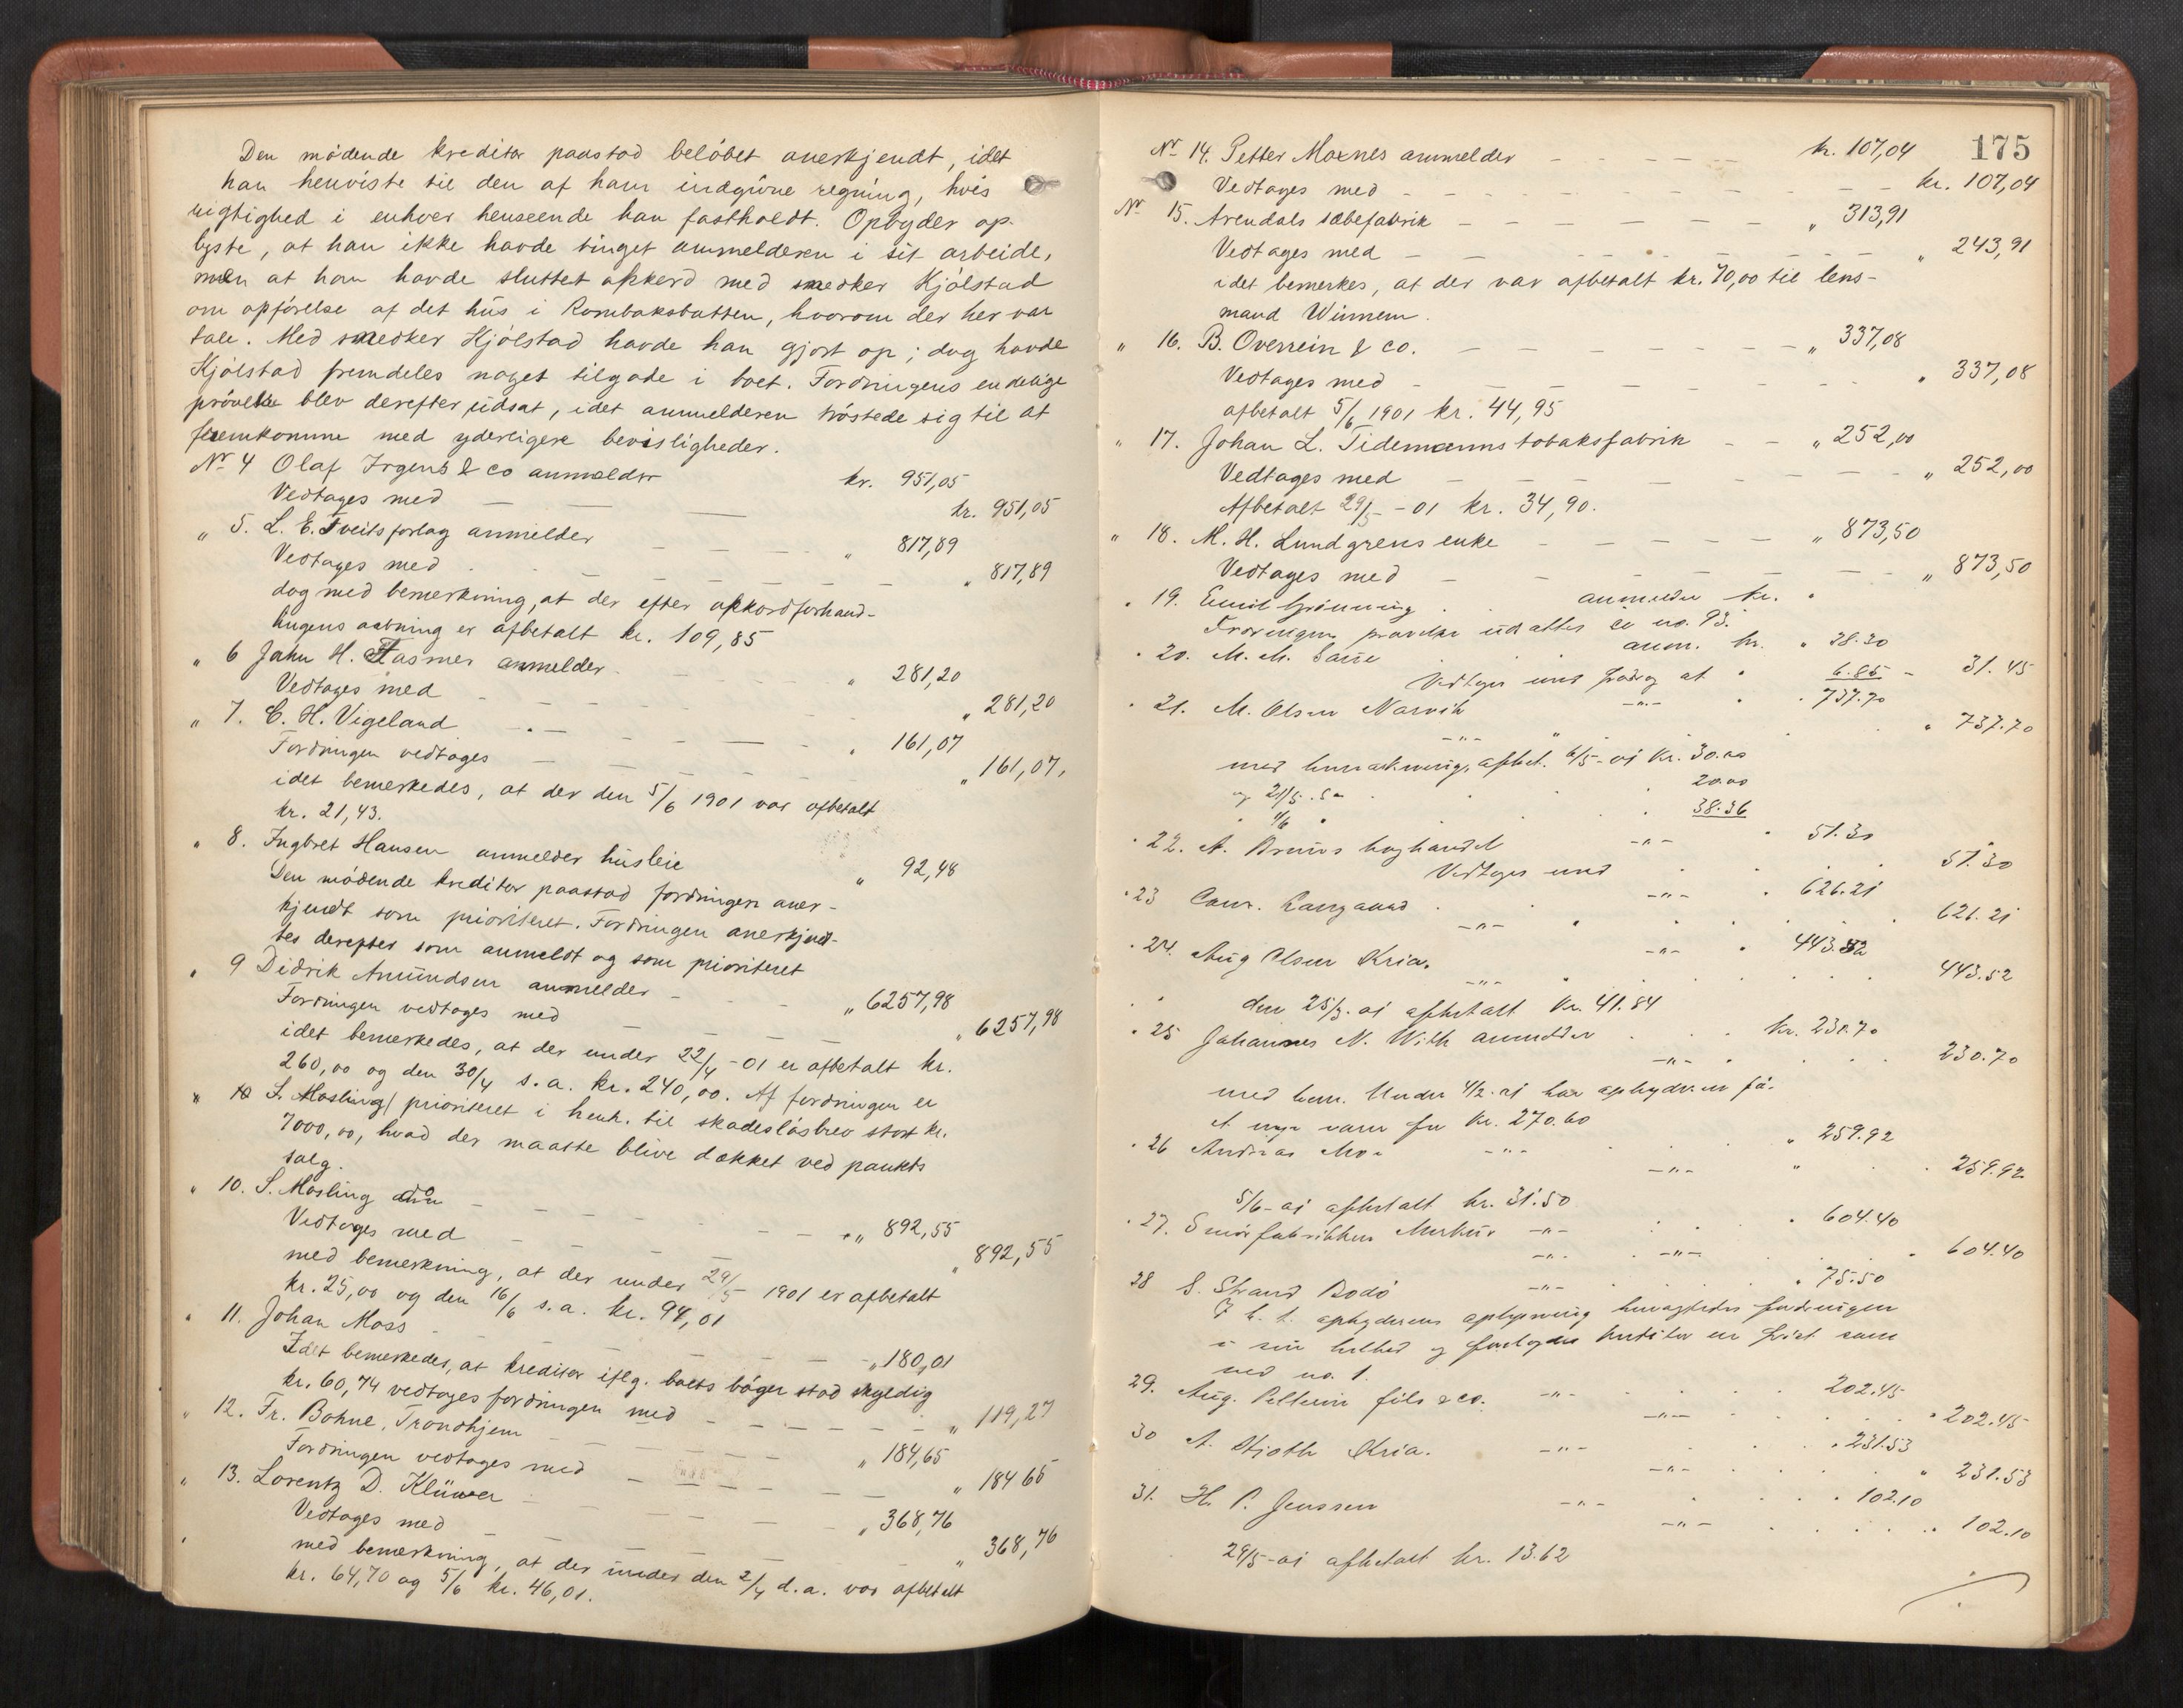 Den mødende kreditor paastod beløbet anerkjendt, idet
han henviste til den af ham indgivne regning, hvis
rigtighed i enhver henseende han fastholdt. Opbyder op-
lyste, at han ikke havde tinget anmelderen i sit arbeide,
men at han havde sluttet akkord med snedker Kjølstad
om opførelse af det hus i Rombaksbotten, hvorom der her var
tale. Med snedker Kjølstad havde han gjort op; dog havde
Kjølstad fremdeles noget tilgode i boet. Fordringens endelige
prøvelse blev derefter udsat, idet anmelderen trøstede sig til at
fremkomme med yderligere bevisligheder.
No 4 Olaf Irgens & co anmelder kr. 951,05
Vedtages med kr. 951,05
" 5. L. E. Tveits forlag anmelder " 817,89
Vedtages med " 817,89
dog med bemerkning, at der efter akkordforhand-
lingens aabning er afbetalt kr. 109,85
" 6 Jahn H. Fasmer anmelder " 281,20
Vedtages med " 281,20
" 7. C. H. Vigeland " 161,07
Fordringen vedtages " 161,07,
idet bemerkedes, at der den 5/6 1901 var afbetalt
kr. 21,43.
" 8. Ingbret Hansen anmelder husleie " 92,48
Den mødende kreditor paastod fordringen aner-
kjendt som prioriteret. Fordringen anerkjend-
tes derefter som anmeldt og som prioriteret
" 9 Didrik Amundsen anmelder " 6257,98
Fordringen vedtages med " 6257,98
idet bemerkedes, at der under 22/4 -01 er afbetalt kr.
260,00 og den 30/4 s.a. kr. 240,00. Af fordringen er
" 10 S. Mosling / prioriteret i henh. til skadesløsbrev stort kr.
7000,00, hvad der maatte blive dækket ved pantets
salg.
" 10. S. Mosling " 892,55
Vedtages med " 892,55
med bemerkning, at der under 29/5 1901 er afbetalt
kr. 25,00 og den 16/6 s.a. kr. 94,01
" 11. Johan Moss " 180,01
Idet bemerkedes, at kreditor iflg. boets bøger stod skyldig
kr. 60,74 vedtages fordringen med " 119,27
" 12. Fr. Bohne, Trondhjem " 184,65
Fordringen vedtages med " 184 65
" 13. Lorentz D. Klüwer " 368,76
Vedtages med " 368,76
med bemerkning, at der under den 2/4 d.a. var afbetalt
kr. 64,70 og 5/6 kr. 46,01.
175
No 14. Petter Moxnes anmelder kr. 107,04
Vedtages med kr. 107,04
No 15. Arendals sæbefabrik " 313,91
Vedtages med " 243,91
idet bemerkes, at der var afbetalt kr. 70,00 til lens-
mand Winnem.
" 16. B. Overrein & co. " 337,08
Vedtages med " 337,08
afbetalt 5/6 1901 kr. 44,95
" 17. Johan L. Tidemanns tobaksfabrik " 252,00
Vedtages med " 252,00
Afbetalt 29/5 -01 kr. 34,90.
" 18. M. H. Lundgrens enke " 873,50
Vedtages med " 873,50
" 19. Emil Grönning anmelder kr. "
prøvelse udsattes no. 93.
" 20. M. M. anm. kr. " 28.30
Vedtages med 6.85 31.45
" 21. M. Olsen Narvik -"- 737.70
-"- " 737.70
med bemærkning, afbet. 6/5-01 kr. 30.00
og 21/5 20.00
38.36
" 22. A. Bruns boghandel -"- 51.30
Vedtages med 51.30
" 23 Conr. Langaard -"- 626.21
-"- 626.21
" 24. Aug Olsen Kria. -"- 443.52
-"- 443.52
den 25/3. 01 afbetalt kr. 41.84
" 25 Johannes N. With anmelder kr. 230.70
-"- 230.70
med bem. Under 4/2. 01 har opbyderen få-
t nye varer for kr. 270.60
" 26 Andreas Moe -"- " 259.92
-"- " 259.92
5/6-01 afbetalt kr. 31.50
" 27. Smørfabrikken Merkur -"- " 604.40
-"- -"- " 604.40
28 S. Strand Bodö -"- " 75.50
I h. t. opbyderens oplysning benægtedes fordringen
i sin helhed og forelagdes kreditor en frist som
ved no. 1.
29. Aug. Pellerin fils & co. -"- 202.45
-"- " 202.45
30 A. Hjorth Kria. -"- " 231.53
-"- " 231.53
31. H. P. Jenssen -"- " 102.10
-"- " 102.10
29/5-01 afbetalt kr. 13.62